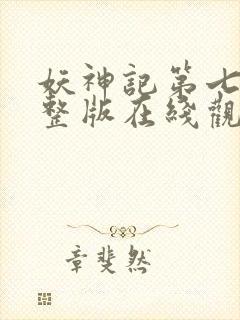 妖神記第七
整版在綫觀
章斐然